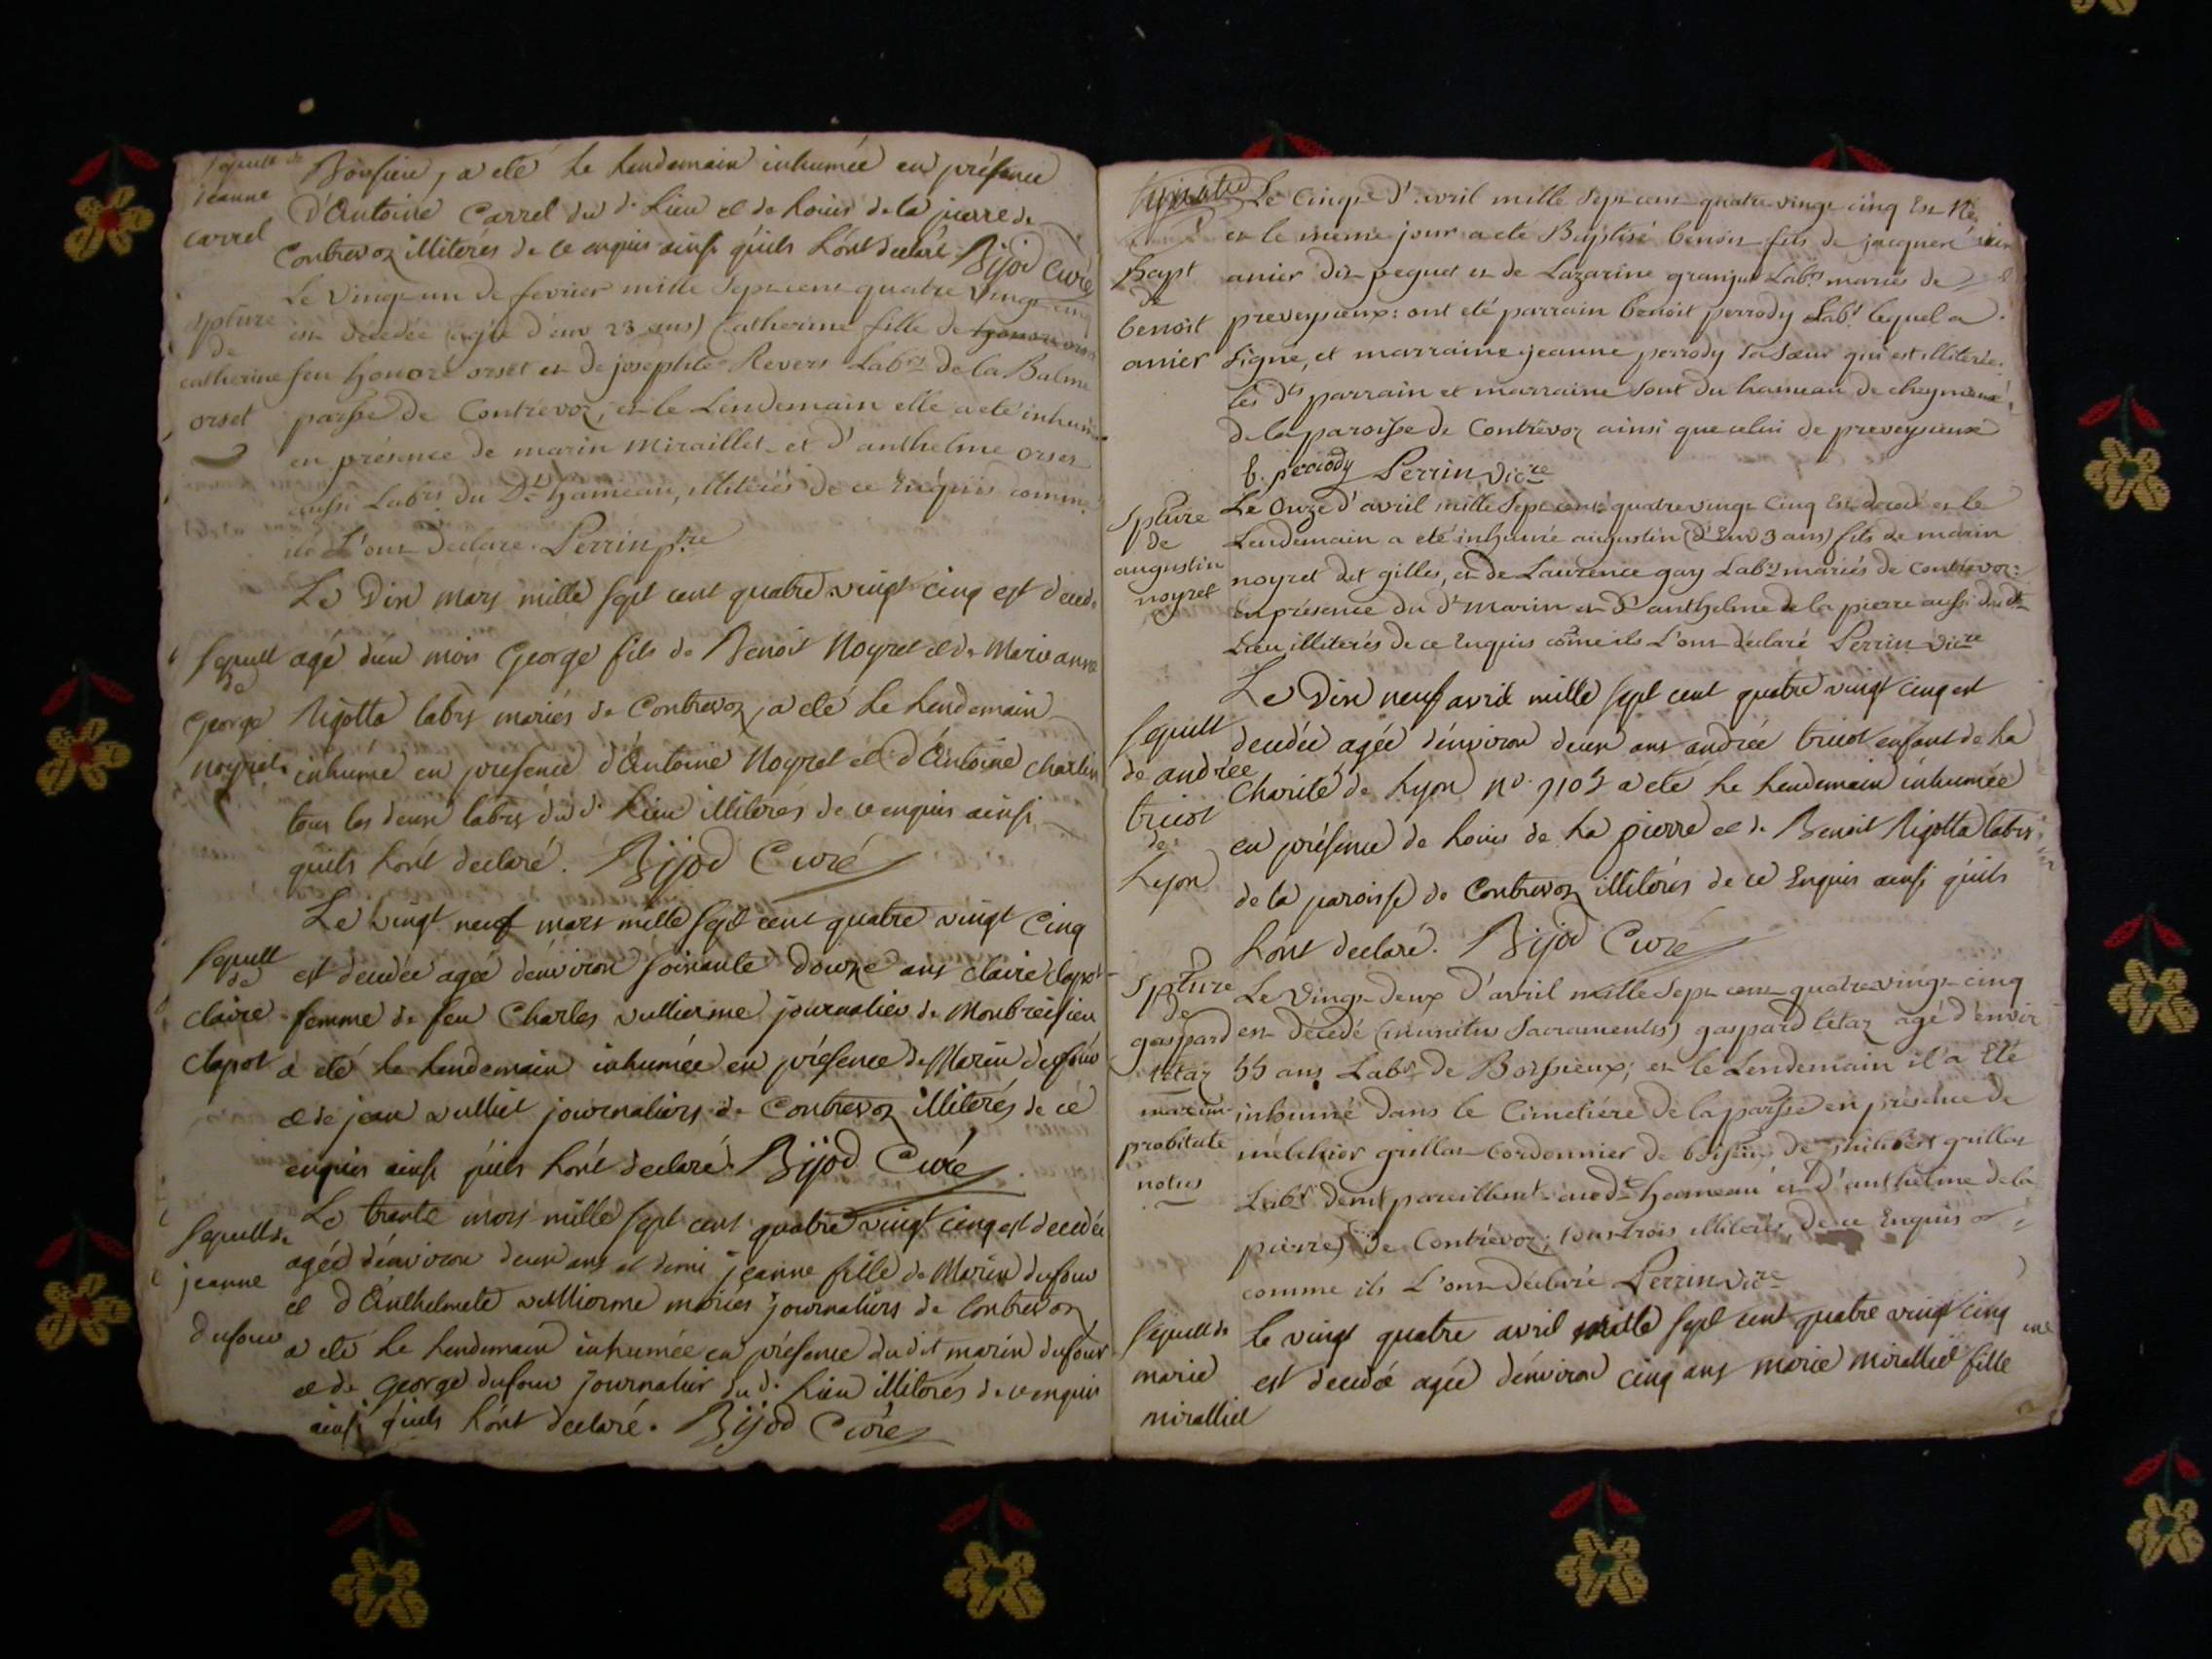 Sepult de
jeanne
carrel
Boissieu, a eté le lendemain inhumée en présence
d'Antoine Carrel du d. lieu et de louis de la pierre de
Contrevoz illiterés de ce enquis ainsi quils l'ont declaré. Bijod Curé
Spture
de
catherine
orset
Le vingt un de fevrier mille sept cent quatre vingt cinq
est décédée (agée d'env 23 ans) Catherine fille de
feu honoré orset et de josephte Revers Labrs de la Balme
parsse de Contrevoz, et le Lendemain elle a eté inhumée
en présence de marin Miraillet et d'anthelme orset
aussi Labrs du Dt hameau, illiterés de ce Enquis comme
ils L'ont declaré. Perrin ptre
Sepult
de
George
noyret
Le Dix mars mille sept cent quatre vingt cinq est deced.
agé d'un mois George fils de Benoit Noyret et de Marie anne
Rigotta labrs mariés de Contrevoz, a eté le lendemain
inhumé en presence d'Antoine Noyret et d'Antoine charlin
tous les deux labrs du d. lieu illiterés de ce enquis ainsi
quils l'ont declaré. Bijod Curé
Sepult
de
claire
clapot
Le vingt neuf mars mille sept cent quatre vingt Cinq
est decedée agée d'environ soixante douze ans claire clapot
femme de feu Charles vullierme journalier de Montbreisieu
a eté le lendemain inhumée en présence de Marin dufour
et de jean vulliet journaliers de Contrevoz illiterés de cé
enquis ainsi quils l'ont declaré. Bijod Curé
Sepult de
jeanne
dufour
Le trente mars mille sept cent quatre vingt cinq est decedée
agée d'environ deux ans et demi jeanne fille de Marin dufour
et d'Anthelmete vullierme mariés journaliers de Contrevoz
a eté le lendemain inhumée en présence dudit marin dufour
et de George dufour journalier du d. lieu illiterés de ce enquis
ainsi quils l'ont declaré. Bijod Curé
Bapt
de
benoit
anier
Le Cinq d'avril mille sept cent quatre vingt cinq Est Né
et le meme jour a eté Baptisé benoit fils de jacques
anier dit peguet et de Lazarine granjat Labrs mariés de
preveysieux: ont eté parrain benoit perrody Labr lequel a
signé, et marraine jeanne perrody sa sœur qui est illiterée.
les dts parrain et marraine sont du hameau de
de la paroisse de Contrevoz ainsi que celui de preveysieux
b. perrody Perrin Vicre
Spture
de
augustin
noyret
Le Onze d'avril mille sept cent quatre vingt Cinq Est décédé et le
Lendemain a eté inhumé augustin (d'Env 3 ans) fils de marin
noyret dit gilles, et de Laurence gay Labrs mariés de Contrevoz:
en présence du dt Marin et d'anthelme de la pierre aussi du dt
Lieu illiterés de ce Enquis come ils L'ont déclaré Perrin Vicre
Sepult
de andrée
tricot
de
Lyon
Le Dix neuf avril mille sept cent quatre vingt cinq est
decedée agée d'environ deux ans andrée tricot enfant de la
Charité de Lyon no. 9105 a eté le lendemain inhumée
en présence de louis de la pierre et de Benoit Rigotta labrs
de la paroisse de Contrevoz illiterés de ce Enquis ainsi quils
l'ont declaré. Bijod Curé
Spture
de
gaspard
tetaz
probitate
notus
Le Vingt-deux d'avril mille sept cent quatre vingt cinq
est décédé (munitus Sacramentis) gaspard tetaz agé d'environ
55 ans Labr de Boissieux; et le Lendemain il a Eté
inhumé dans le Cimetiére de la parsse en présence de
mélchior grillet Cordonnier de de philibert grillet
Labr demt pareillemt audt hameau et d'anthelme de la
pierre de Contrevoz; tous trois illiterés, de ce Enquis
comme ils L'ont déclaré Perrin Vicre
Sepult de
marie
miralliet
Le vingt quatre avril mille sept cent quatre vingt cinq
est decedée agée d'environ cinq ans marie miralliet fille